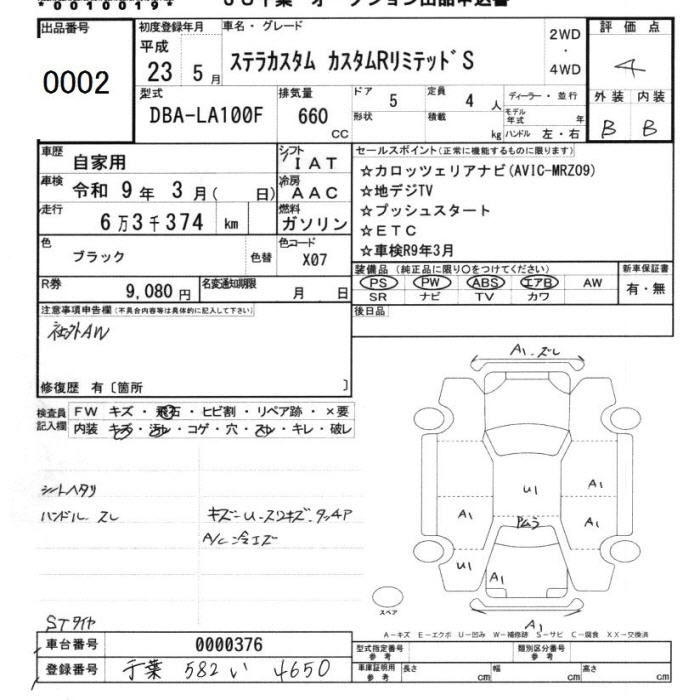 出品番号
0002
初度登録年月
平成
23 5 月
車名・グレード
ステラカスタム カスタムRリミテッドS
2WD
・
4WD
評価点
4
型式
DBA-LA100F
排気量
660
CC
ドア 5
形状
定員 4 人
積載 kg
ディーラー・並行
モデル年式 年
ハンドル 左・右
外装 内装
B B
車歴
自家用
車検
令和 9 年 3 月( 日)
走行
6 万 3 千 374 km
色
ブラック
色替
シフト
IAT
冷房
AAC
燃料
ガソリン
色コード
X07
セールスポイント(正常に機能するものに限ります)
☆カロッツェリアナビ(AVIC-MRZ09)
☆地デジTV
☆プッシュスタート
☆ETC
☆車検R9年3月
R券
9,080 円
名変通知期限
月 日
装備品(純正品に限り○をつけてください)
PS PW ABS エアB AW
SR ナビ TV カワ
新車保証書
有・無
注意事項申告欄(不具合内容等は具体的に記入して下さい)
社外AW
修復歴 有〔箇所 〕
後日品
検査員
記入欄
FW キズ・飛石・ヒビ割・リペア跡・×要
内装 キズ・汚レ・コゲ・穴・スレ・キレ・破レ
シートヘタリ
ハンドル スレ
キズ-U-スリキズ
A/C
STタイヤ
A1.ズレ
U1
A1
A1
A1
U1
A1
A1
スペア
A-キズ E-エクボ U-凹み W-補修跡 S-サビ C-腐食 XX-交換済
車台番号 0000376
登録番号 千葉 582 い 4650
型式指定番号
参考
類別区分番号
参考
車庫証明用
参考
長さ cm 幅 cm 高さ cm